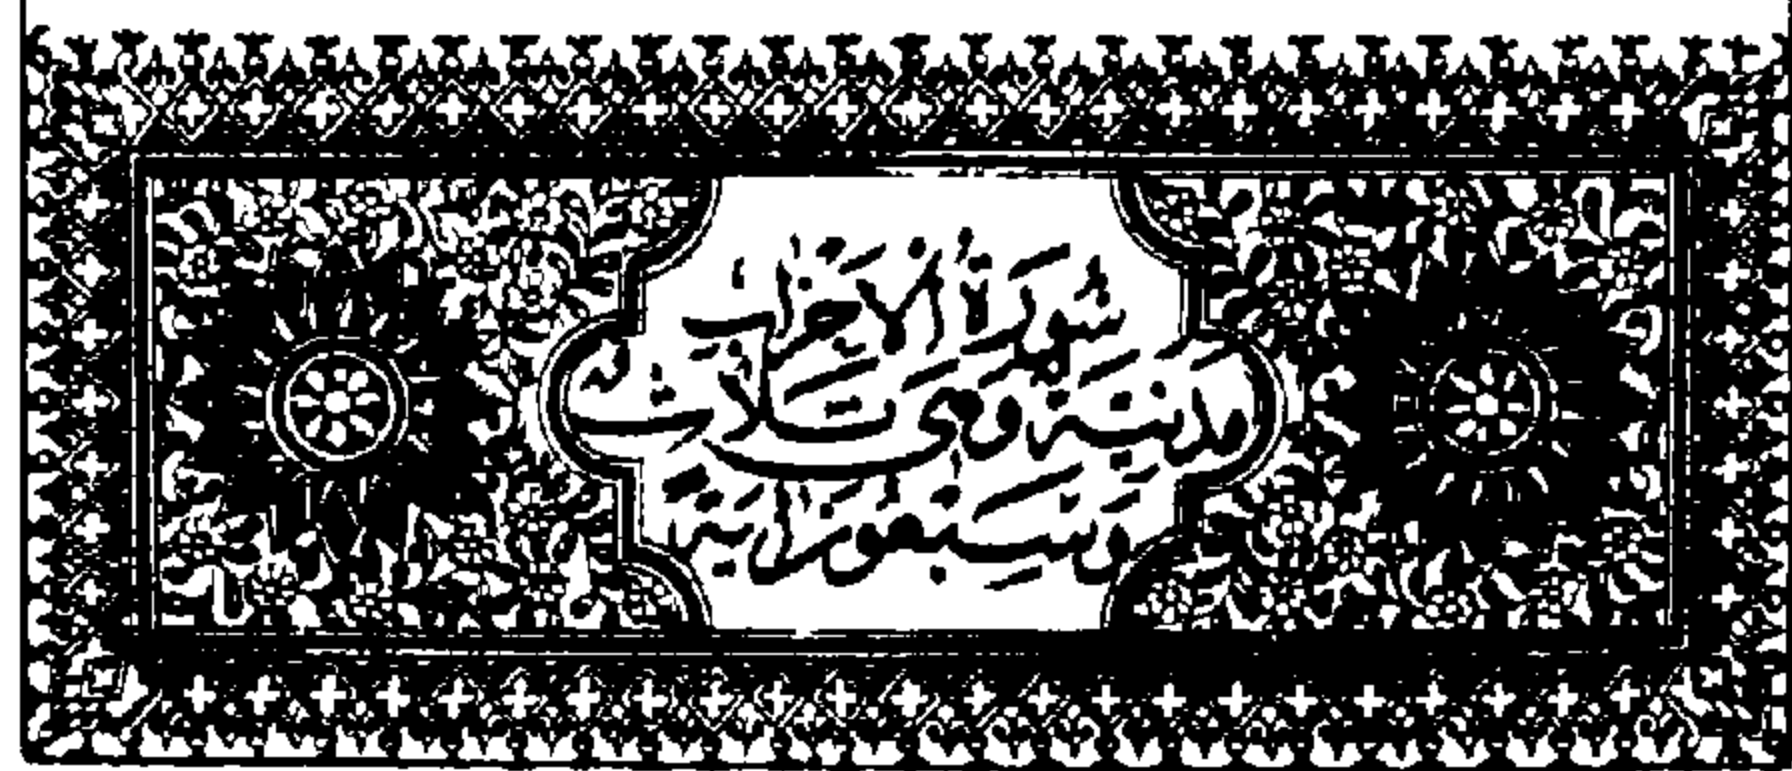 سُورَةُ الْاَحْزَابِ
مَدَنِيَّةٌ وَهِيَ ثَلَاثٌ
وَسَبْعُونَ اٰيَةً